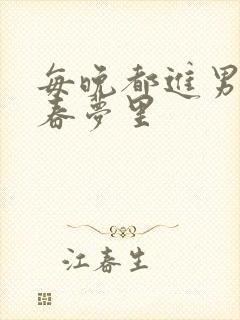 每晚都进男
春梦里
江春生